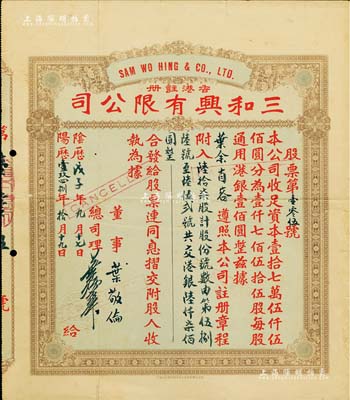 SAM WO HING & CO., LTD.
香港註册
三和興有限公司
股票第壹叁伍號
本公司收足資本壹拾七萬伍仟伍
佰圓分為壹仟七佰伍拾伍股每股
通用港銀壹佰圓整兹據
葉余肖容 遵照本公司註册章程
附入陸拾柒股計股份號數由第伍捌
陸號至陸伍弍號共交港銀陸仟柒佰
圓整
合發給股票連同息摺交附股人收
執為據
董事 葉敬倫
總司理
CANCELLED
陰歷戊子年九月十七日
陽歷壹玖四捌年拾月十九日
給